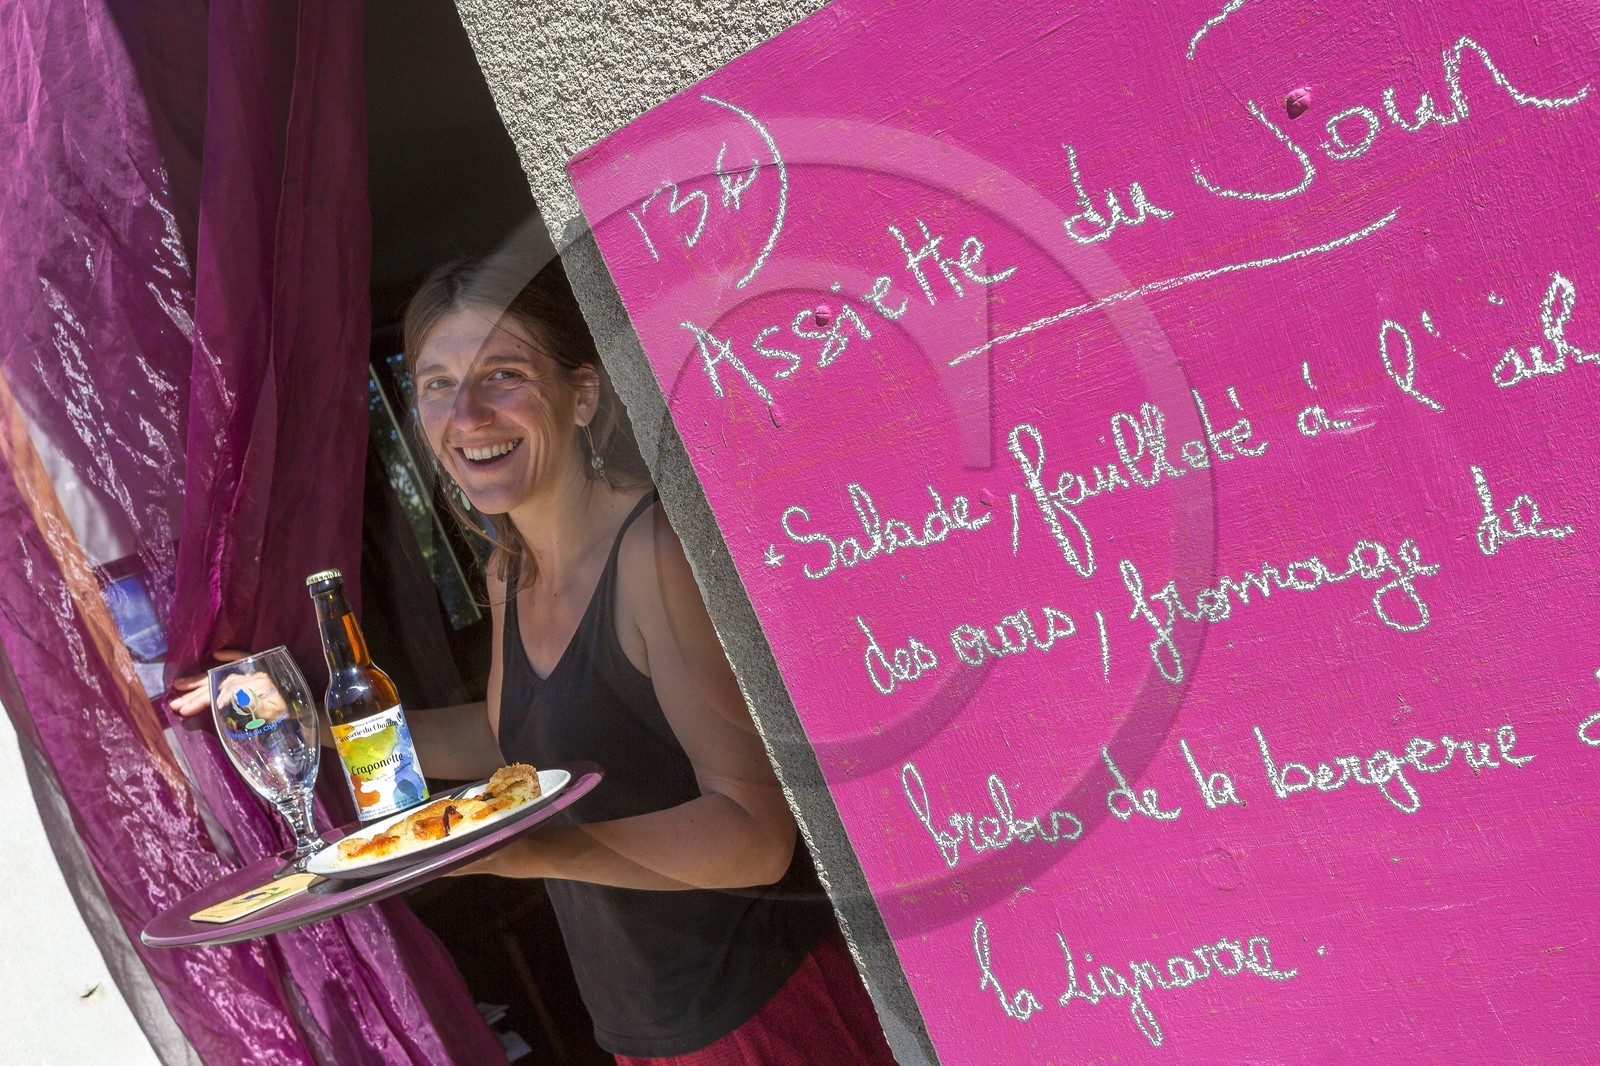 13€)
Assiette du Jour
*Salade, feuilleté à l'ail
des ours, fromage de
brebis de la bergerie
la Lignarre.
Brasserie du
Craponette